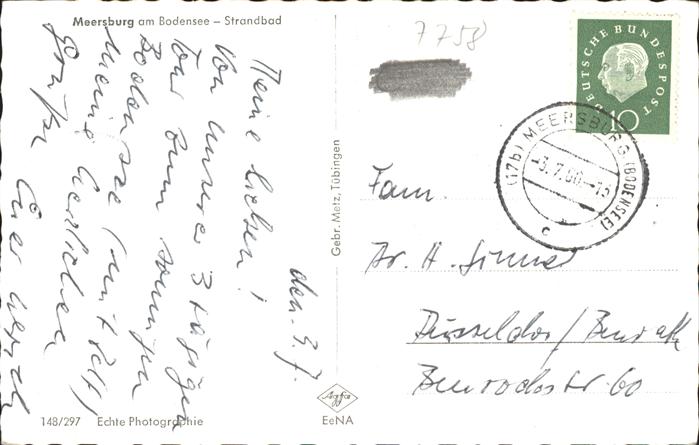 Meersburg am Bodensee – Strandbad
7758
DEUTSCHE BUNDESPOST
10
(17b) MEERSBURG (BODENSEE)
-3.7.60.-13
c
den 3.7.
Meine Lieben!
Von unserer 3 tägigen
Tour zum sonnigen
Bodensee (mit
meine herzlichen
Grüße
Euer
Gebr. Metz, Tübingen
Fam.
Dr. H.
Düsseldorf/Benrath
60
148/297 Echte Photographie
Agfa
EeNA